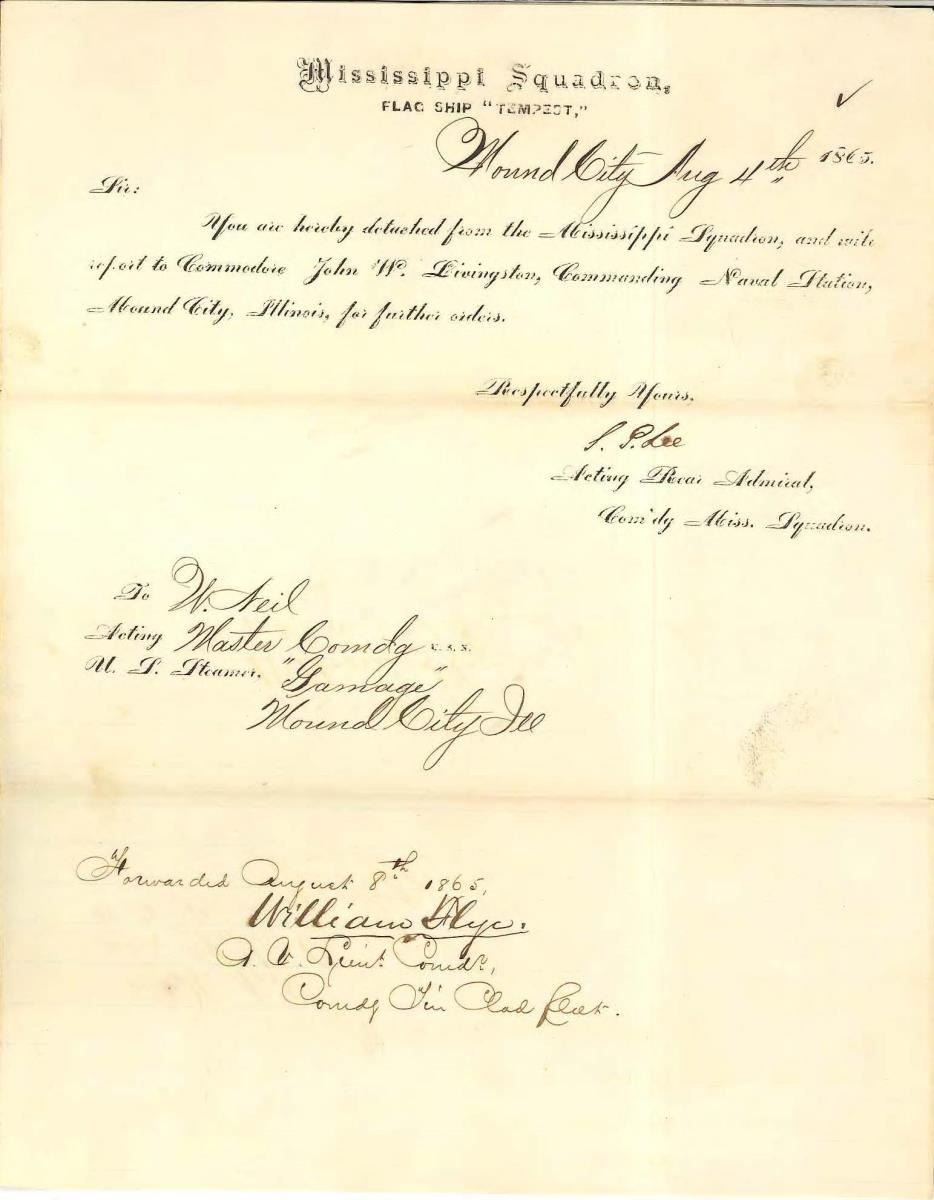 Mississippi Squadron,
FLAG SHIP "TEMPEST,"
Mound City Aug 4th 1865.
Sir:
You are hereby detached from the Mississippi Squadron, and will
report to Commodore John W. Livingston, Commanding Naval Station,
Mound City, Illinois, for further orders.
Respectfully Yours,
S. P. Lee
Acting Rear Admiral,
Com'dg Miss. Squadron.
To W. Neil
Acting Master Comdg U. S. N.
U. S. Steamer, "Gamage"
Mound City Ill
Forwarded August 8th 1865,
William Flye.
A. V. Lieut. Comdr,
Comdg Tin Clad fleet.